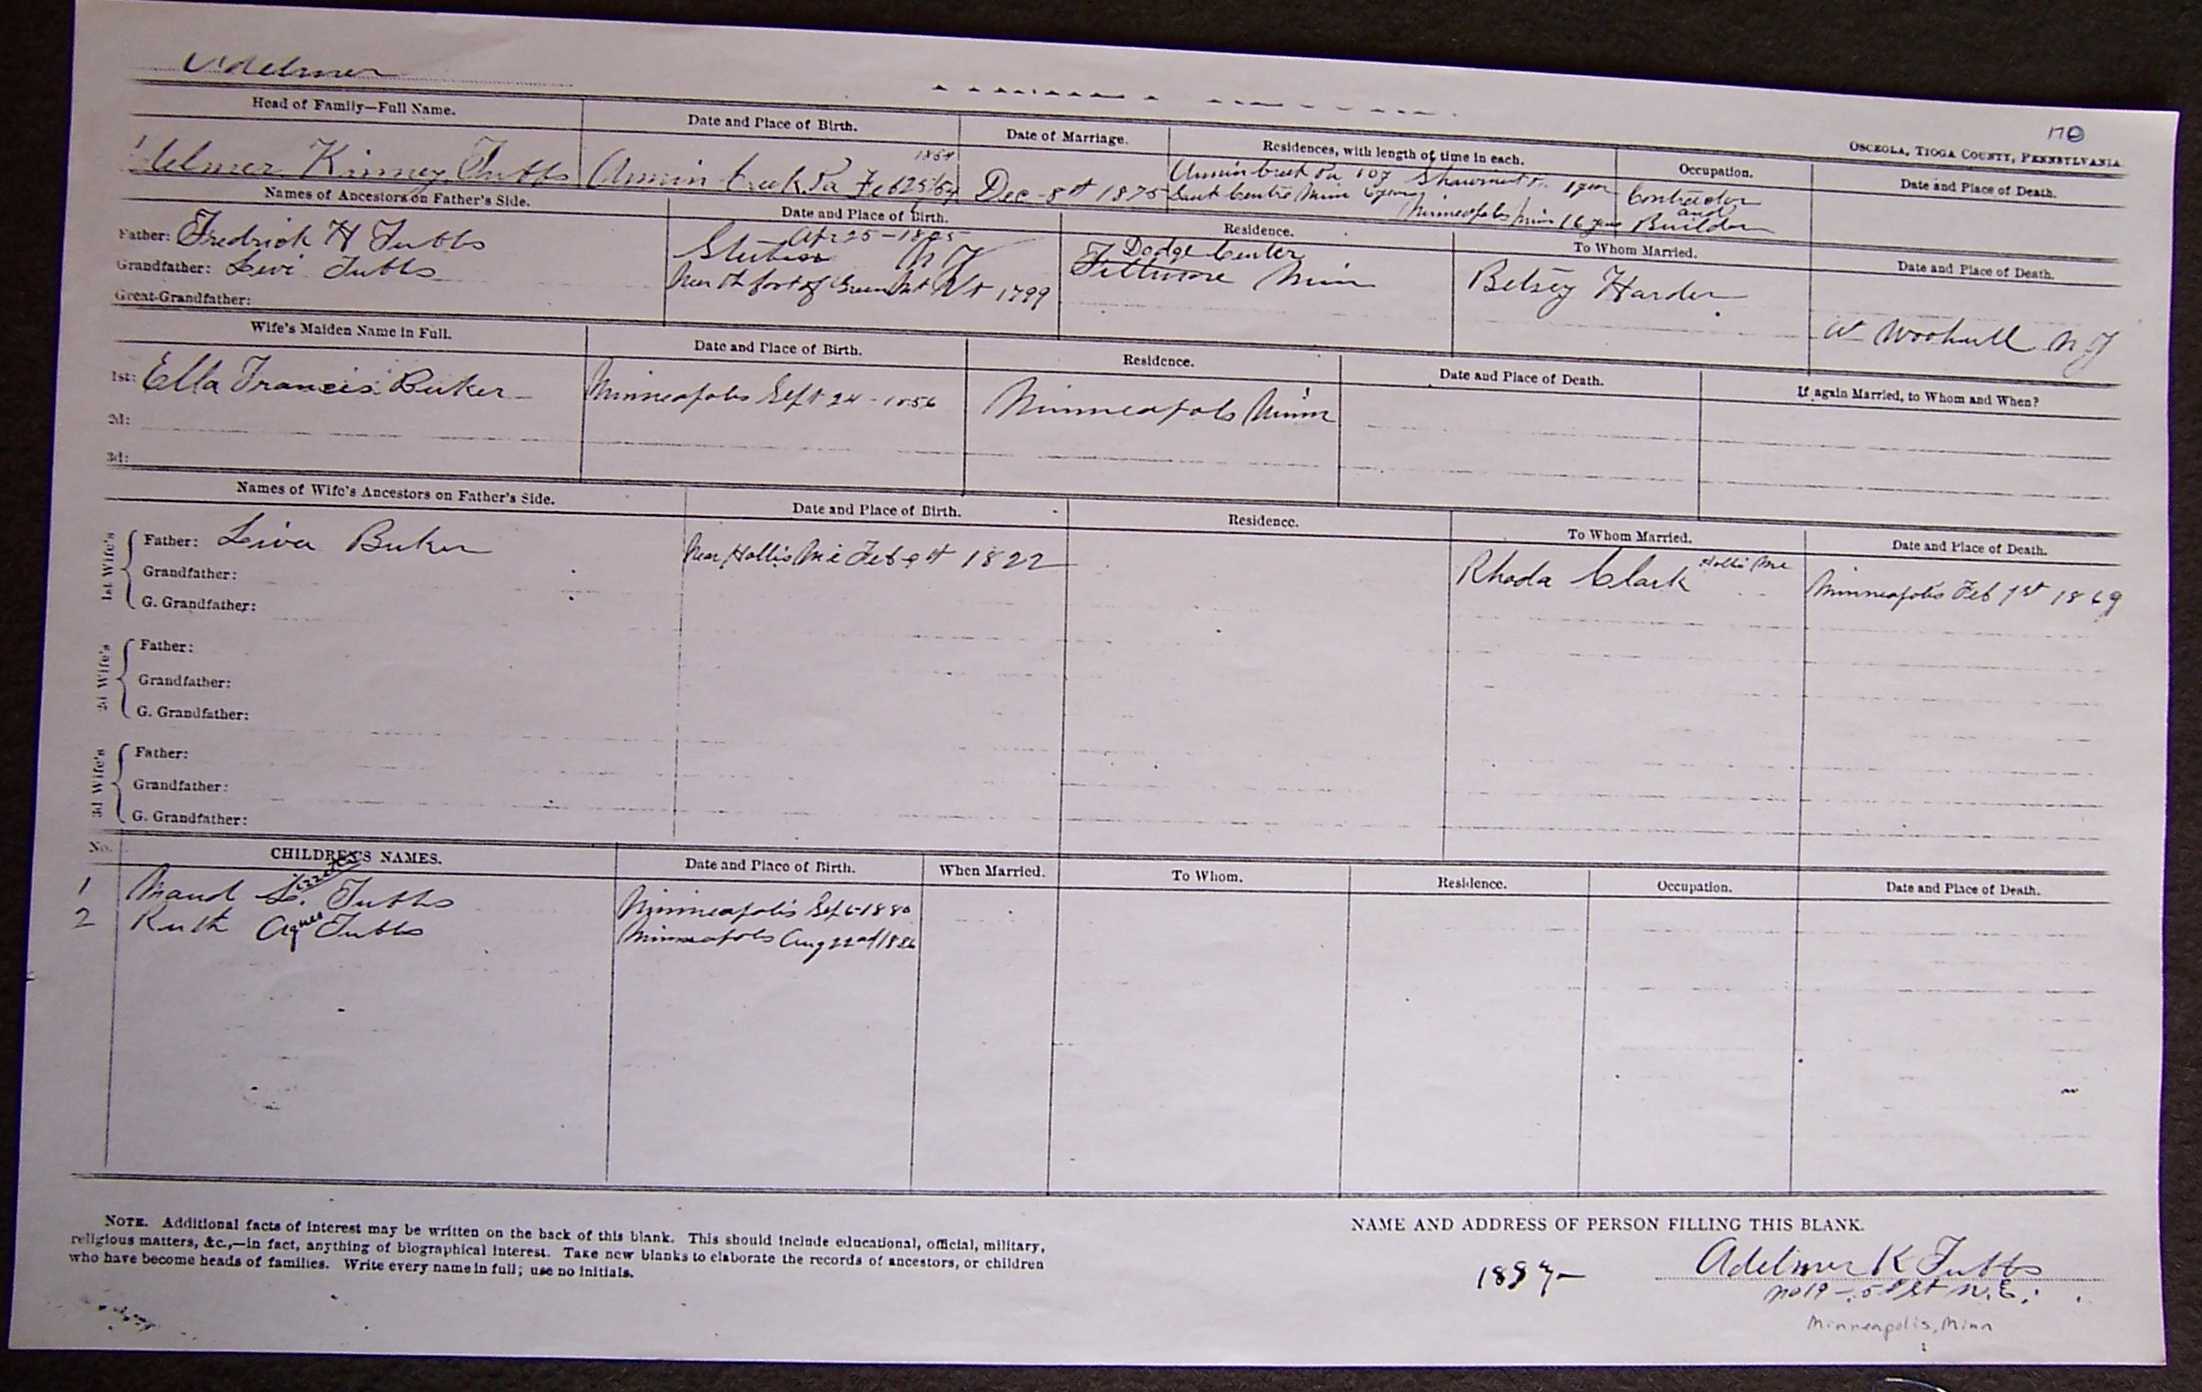 Adelmer
170
OSCEOLA, TIOGA COUNTY, PENNSYLVANIA
Head of Family—Full Name. Date and Place of Birth. Date of Marriage. Residences, with length of time in each. Occupation. Date and Place of Death.
Adelmer Kinney Tubbs Pa Feb 25/54 1854 Dec 8st 1875 Pa 10y 1 year Contractor
Sauk Centre Minn 6 years Minneapolis Minn 16 years and Builder
Names of Ancestors on Father's Side. Date and Place of Birth. Residence. To Whom Married. Date and Place of Death.
Father: Fredrick H Tubbs Steuben N Y Apr 25-1825 Dodge Center Fillmore Minn Betsey Harder
Grandfather: Levi Tubbs Near the foot of Green Mt Vt 1799
Great-Grandfather: at Woohull N Y
Wife's Maiden Name in Full. Date and Place of Birth. Residence. Date and Place of Death. If again Married, to Whom and When?
1st: Ella Francis Buker Minneapolis Sept 24-1856 Minneapolis Minn
2d:
3d:
Names of Wife's Ancestors on Father's Side. Date and Place of Birth. Residence. To Whom Married. Date and Place of Death.
1st Wife's
Father: Buker Near Hollis Me Feb 1822 Rhoda Clark Hollis Me Minneapolis Feb 1st 1869
Grandfather:
G. Grandfather:
2d Wife's
Father:
Grandfather:
G. Grandfather:
3d Wife's
Father:
Grandfather:
G. Grandfather:
No. CHILDREN'S NAMES. Date and Place of Birth. When Married. To Whom. Residence. Occupation. Date and Place of Death.
1 Maud L. Tubbs Minneapolis Sept 6-1880
2 Ruth Agnes Tubbs Minneapolis Aug 22nd/1886
NOTE. Additional facts of interest may be written on the back of this blank. This should include educational, official, military,
religious matters, &c.,—in fact, anything of biographical interest. Take new blanks to elaborate the records of ancestors, or children
who have become heads of families. Write every name in full; use no initials.
NAME AND ADDRESS OF PERSON FILLING THIS BLANK.
1897- Adelmer K Tubbs
No 19 - 5 St N.E.
Minneapolis, Minn